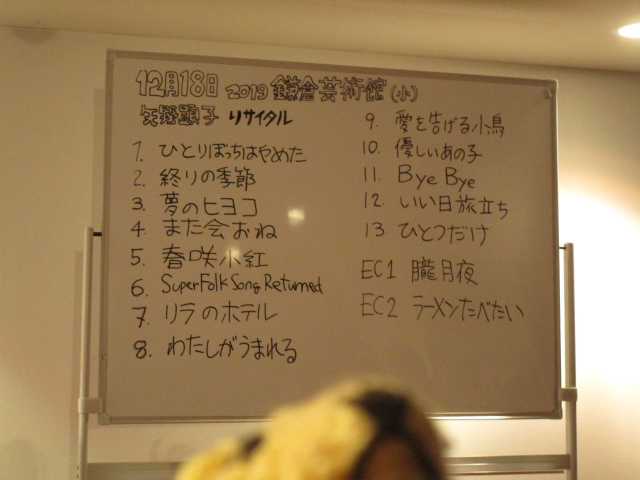 12月18日 2019 鎌倉芸術館(小)
矢野顕子 リサイタル
1. ひとりぼっちはやめた
2. 終りの季節
3. 夢のヒヨコ
4. また会おね
5. 春咲小紅
6. Super Folk Song Returned
7. リラのホテル
8. わたしがうまれる
9. 愛を告げる小鳥
10. 優しいあの子
11. Bye Bye
12. いい日旅立ち
13 ひとつだけ
EC1 朧月夜
EC2 ラーメンたべたい